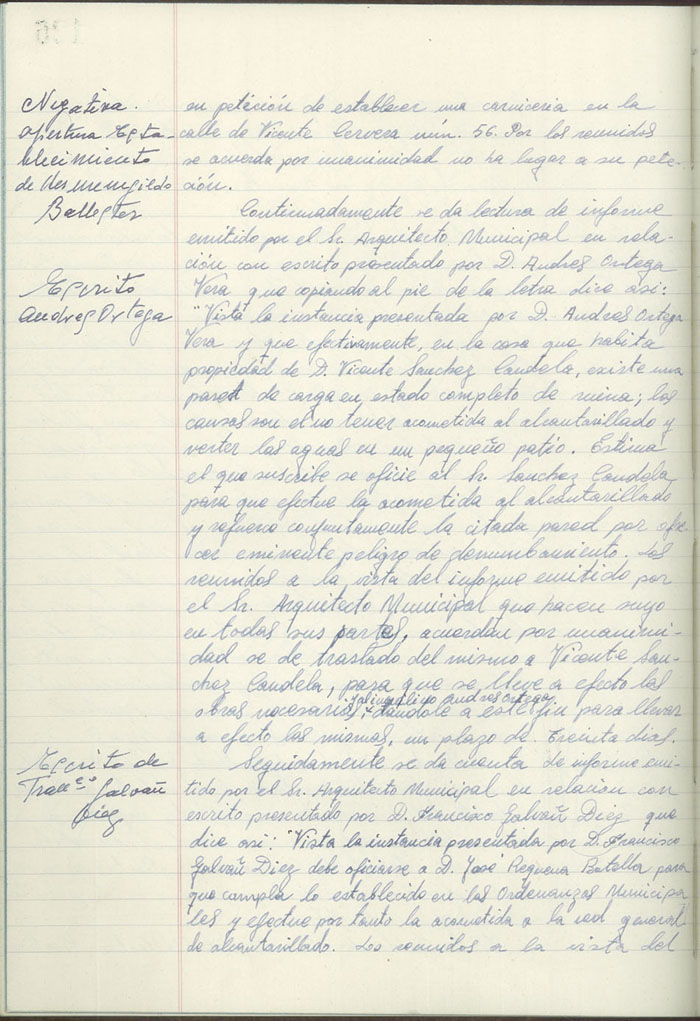 Negativa
apertura Esta-
blecimiento
de Hermenegildo
Ballester
en petición de establecer una carniceria en la
calle de Vicente Cervera núm. 56. Por los reunidos
se acuerda por unanimidad no ha lugar a su peti-
ción.
Continuadamente se da lectura de informe
emitido por el Sr. Arquitecto Municipal en rela-
ción con escrito presentado por D. Andres Ortega
Escrito
Andres Ortega
Vera que copiando al pie de la letra dice asi:
"Vista la instancia presentada por D. Andres Ortega
Vera y que efectivamente, en la casa que habita
propiedad de D. Vicente Sanchez Candela, existe una
pared de carga en estado completo de ruina; las
causas son el no tener acometida al alcantarillado y
verter las aguas en un pequeño patio. Estima
el que suscribe se oficie al Sr. Sanchez Candela
para que efectue la acometida al alcantarillado
y refuerce conjuntamente la citada pared por ofre
cer eminente peligro de derrumbamiento. Los
reunidos a la vista del informe emitido por
el Sr. Arquitecto Municipal que hacen suyo
en todas sus partes, acuerdan por unanimi-
dad se de traslado del mismo a Vicente San-
chez Candela, para que se lleve a efecto las
obras necesarias, y dandole a este fin para llevar
al inquilino Andres Ortega
a efecto las mismas, un plazo de treinta dias.
Escrito de
Franco Galvañ
Diez
Seguidamente se da cuenta de informe emi-
tido por el Sr. Arquitecto Municipal en relacion con
escrito presentado por D. Francisco Galvañ Diez que
dice asi: "Vista la instancia presentada por D. Francisco
Galvañ Diez debe oficiarse a D. José Requena Botella para
que cumpla lo establecido en las Ordenanzas Municipa
les y efectue por tanto la acometida a la red general
de alcantarillado. Los reunidos a la vista del